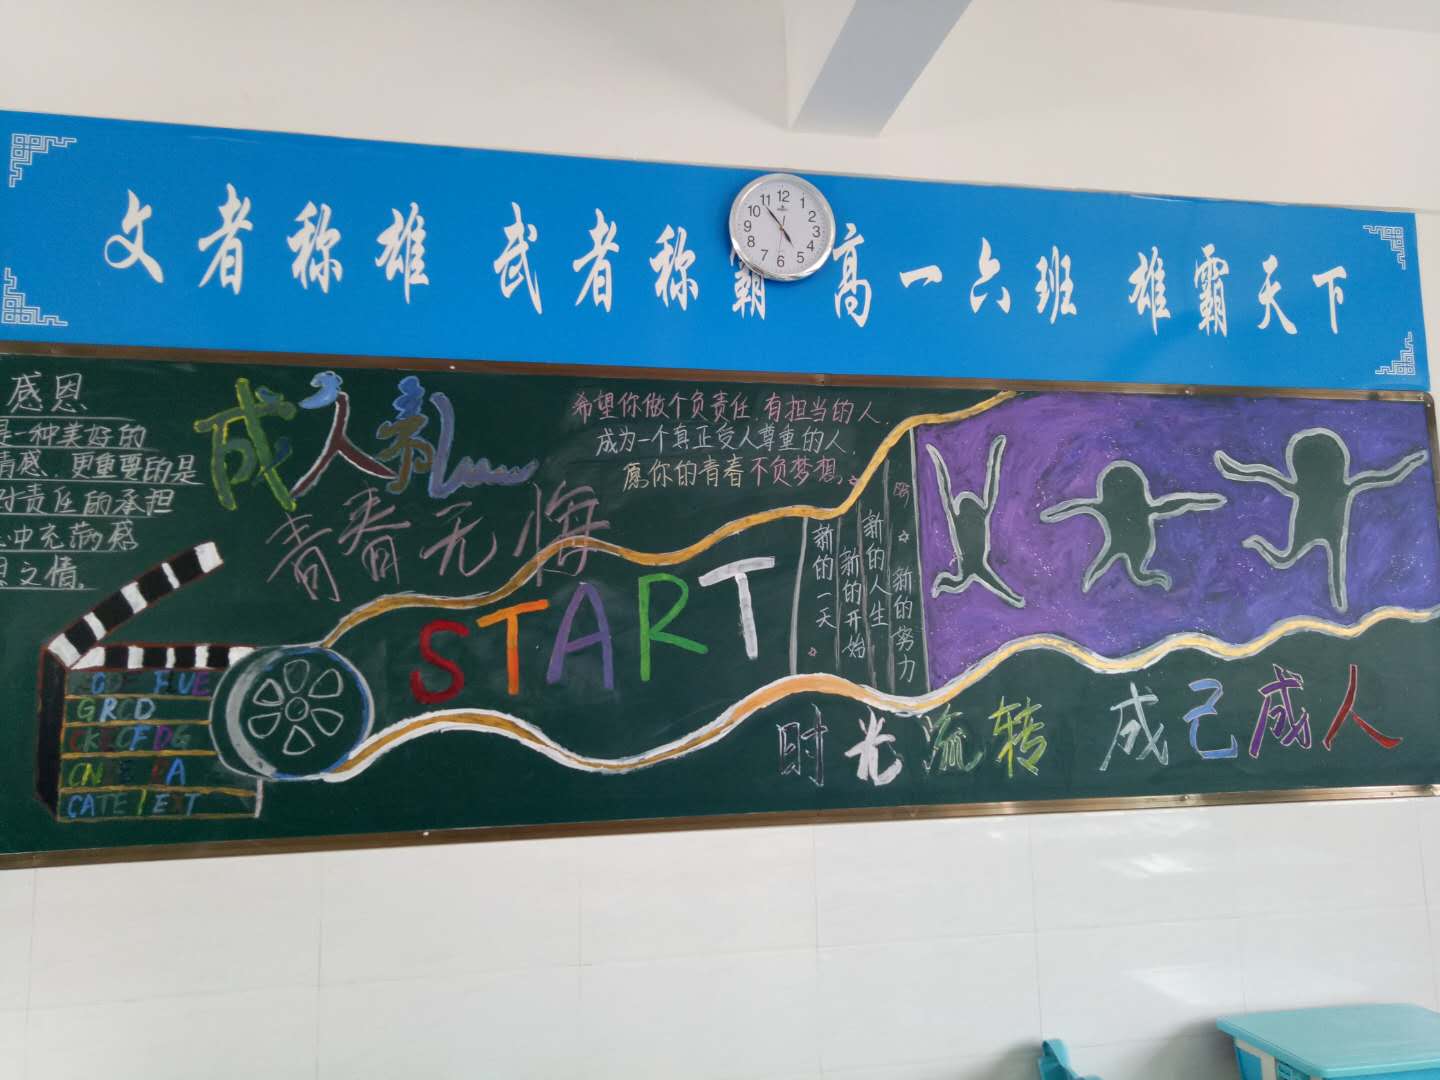 文者称雄 武者称霸 高一六班 雄霸天下
12
1
2
3
4
5
6
7
8
9
10
11
感恩
是一种美好的
情感、更重要的是
对责任的承担
心中充满感
恩之情。
成人礼
青春无悔
希望你做个负责任,有担当的人,
成为一个真正受人尊重的人,
愿你的青春不负梦想。
START
新的一天
新的开始
新的人生
新的努力
时光流转 成己成人